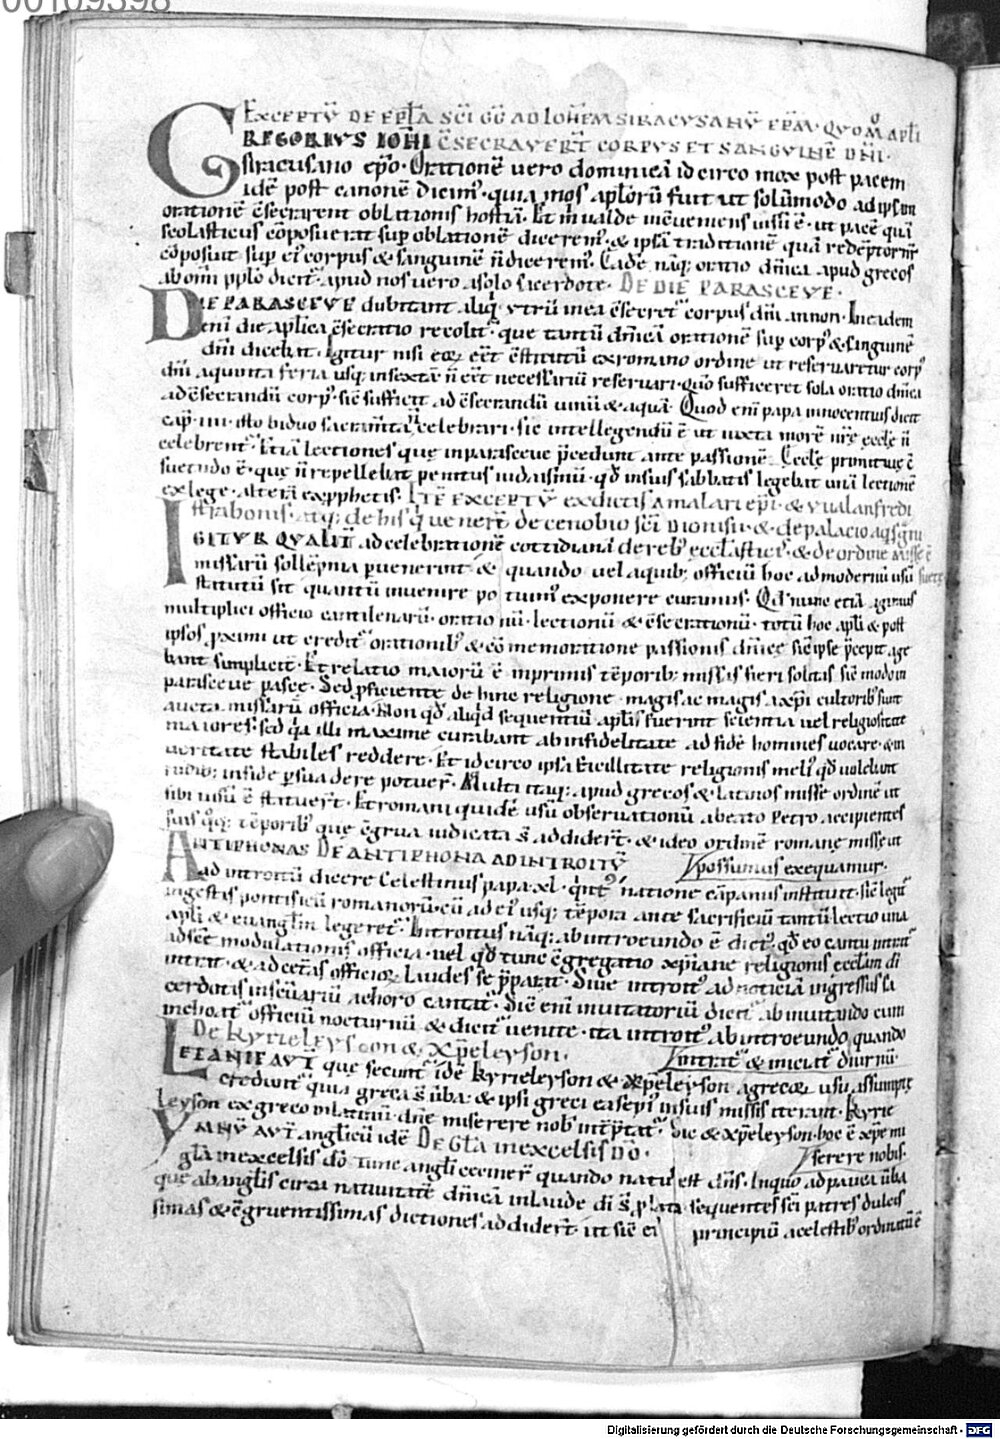 00109398
EXCEPTŪ DE EPLA SCI GG AD IOHEM SIRACUSANŪ EPM. QUOM̊ APLI
GREGORIUS IOHI CSECRAVERT CORPUS ET SANGUINE DNI.
siracusano epo. Orationē vero dominicā idcirco mox post pacem
idē post canonē dicim᷒. quia mos aplorū fuit ut solūmodo ad ipsam
orationē c̄secrarent oblationis hostiā. Et m valde incveniens visū ē. ut pacē quā
scolasticus cōposuerat sup oblationē dicerem᷒. & ipsā traditionē quā redēptor nr̄
cōposuit sup ei᷒ corpus & sanguinē n̄ dicerem᷒. Eadē naq; oratio dn̄ica apud grecos
ab omi pplo dicit᷒. apud nos vero a solo sacerdote. DE DIE PARASCEVE.
DIE PARASCEVE dubitant aliq᷒ utrū in ea c̄secret᷒ corpus dn̄i an non. In eadem
eni die aplica c̄secratio recolit᷒. que tantū dn̄icā orationē sup corp᷒ & sanguinē
dn̄i dicebat. Igitur nisi eēt c̄stitutū ex romano ordine ut reservaretur corp᷒
dn̄i a quinta feria usq; in sextā n̄ eēt necessariū reservari. quō sufficeret sola oratio dn̄ica
ad c̄secrandū corp᷒. sic sufficit ad c̄secrandū vinū & aquā. Quod eni papa innocentius dicit
cap. IIII. isto biduo sacram̄ta n̄ celebrari. sic intellegendū ē ut iuxta morē nrē eccle n̄
celebrent᷒. Etiā lectiones que in parasceve p̄cedunt ante passionē. Eccle primitive ē
suetudo ē. que n̄ repellebat penitus iudaismū. qd̄ in suis sabbatis legebat unā lectionē
ex lege. alterā ex pphetis. ITĒ EXCEPTŪ ex dictis amalari epi. & vualanfredi
strabonis. atq; de his q᷒ venert̄ de cenobio sci Dionisii. & de palacio aqsg̅ni
IGITUR QUALIT̄ ad celebrationē cottidianā de reb᷒ ecclasticis. & de ordine misse ē
missarū sollēpnia pvenerint & quando vel a quib; officiū hoc ad modernū usū
statutū sit quantū invenire potuim᷒ exponere curamus. Qd̄ nunc etiā agimus
multiplici officio cantilenarū. orationū. lectionū & c̄secrationū. totū hoc apli & post
ipsos pximi ut credit᷒ orationib᷒ & cōmemoratione passionis dn̄ice sic̄ ipse p̄cepit age
bant simpliciť. Et relatio maiorū ē inprimis tēporib; missas fieri solitas sic̄ modo in
parasceve pasce. Sed pficiente dehinc religione. magis ac magis a xpi cultorib᷒ sunt
aucta missarū officia. Non qd̄ aliqd̄ sequentiū aplis fuerint scientia vel religiositate
maiores. sed qa illi maxime curabant ab infidelitate ad fidē homines vocare. & in
veritate stabiles reddere. Et idcirco ipsa religionis meli᷒ qd̄ volebant
rudib; in fide psuadere potuer̄. Multi itaq; apud grecos & latinos misse ordinē ut
sibi visū ē statuert̄. Et romani quidē usū observationū a beato Petro accipientes
suis q̄q; tēporib᷒ que c̄grua iudicata s̄ addidert̄. & ideo ordinē romane misse ut
ANTIPHONAS DE ANTIPHONA AD INTROITŪ possumus exequamur.
ad introitū dicere Celestinus papa XL. natione cāpanus instituit. sic̄ legit᷒
in gestis pontificū romanorū. cū ad ei᷒ usq; tēpora ante sacrificiū tantū lectio una
apli & evanglm legeret᷒. Introitus naq; ab introeundo ē dict᷒. qd̄ eo cantu intrat᷒
ad sc̄e modulationis officia. vel qd̄ tunc c̄gregatio xpiane religionis ecclam di
intrat. & ad cet̄as officior. laudes se p̄parat. Sive introit᷒ ad noticiā ingressus sa
cerdotis in scuariū a choro cantat᷒. Sic̄ eni invitatoriū dicit᷒ ab invitando cum
inchoat᷒ officiū nocturnū & dicit᷒ venite. ita introit᷒ ab introeundo quando
De Kyrieleyson & Xp̄eleyson. intrat᷒ & iniciat᷒ diurnū.
LETANIE AUT̄ que secunt᷒ idē kyrieleyson & xp̄eleyson a grecor usu assumpte
credunt᷒ quia greca s̄ ūba. & ipsi greci easepi᷒ in suis missis iterant. Kyrie
leyson ex greco in latinū. dn̄e miserere nob᷒ intēptat᷒. Sic & xp̄eleyson. hoc ē xp̄e mi
YMNŪ AUT̄ anglicū idē DE GLA IN EXCELSIS DO. serere nobis.
gla in excelsis do. Tunc angli cecinert̄ quando natus est dns. In quo ad pauca ūba
que ab anglis circa nativitatē dn̄icā in laude di s̄ plata sequentes sci patres dulcis
simas & c̄gruentissimas dictiones addidert̄. ut sic̄ ei principiū a celestib᷒ ordinatū ē
Digitalisierung gefördert durch die Deutsche Forschungsgemeinschaft - DFG